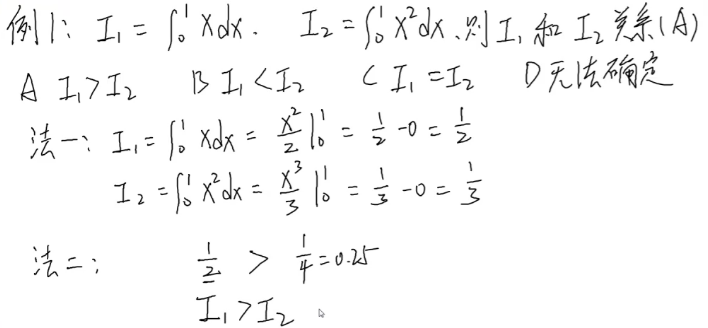 例1: I₁ = ∫₀¹ xdx. I₂ = ∫₀¹ x²dx. 则 I₁ 和 I₂ 关系(A)
A I₁>I₂ B I₁<I₂ C I₁=I₂ D 无法确定
法一: I₁ = ∫₀¹ xdx = x²/2 |₀¹ = 1/2 - 0 = 1/2
I₂ = ∫₀¹ x²dx = x³/3 |₀¹ = 1/3 - 0 = 1/3
法二: 1/2 > 1/4 = 0.25
I₁>I₂